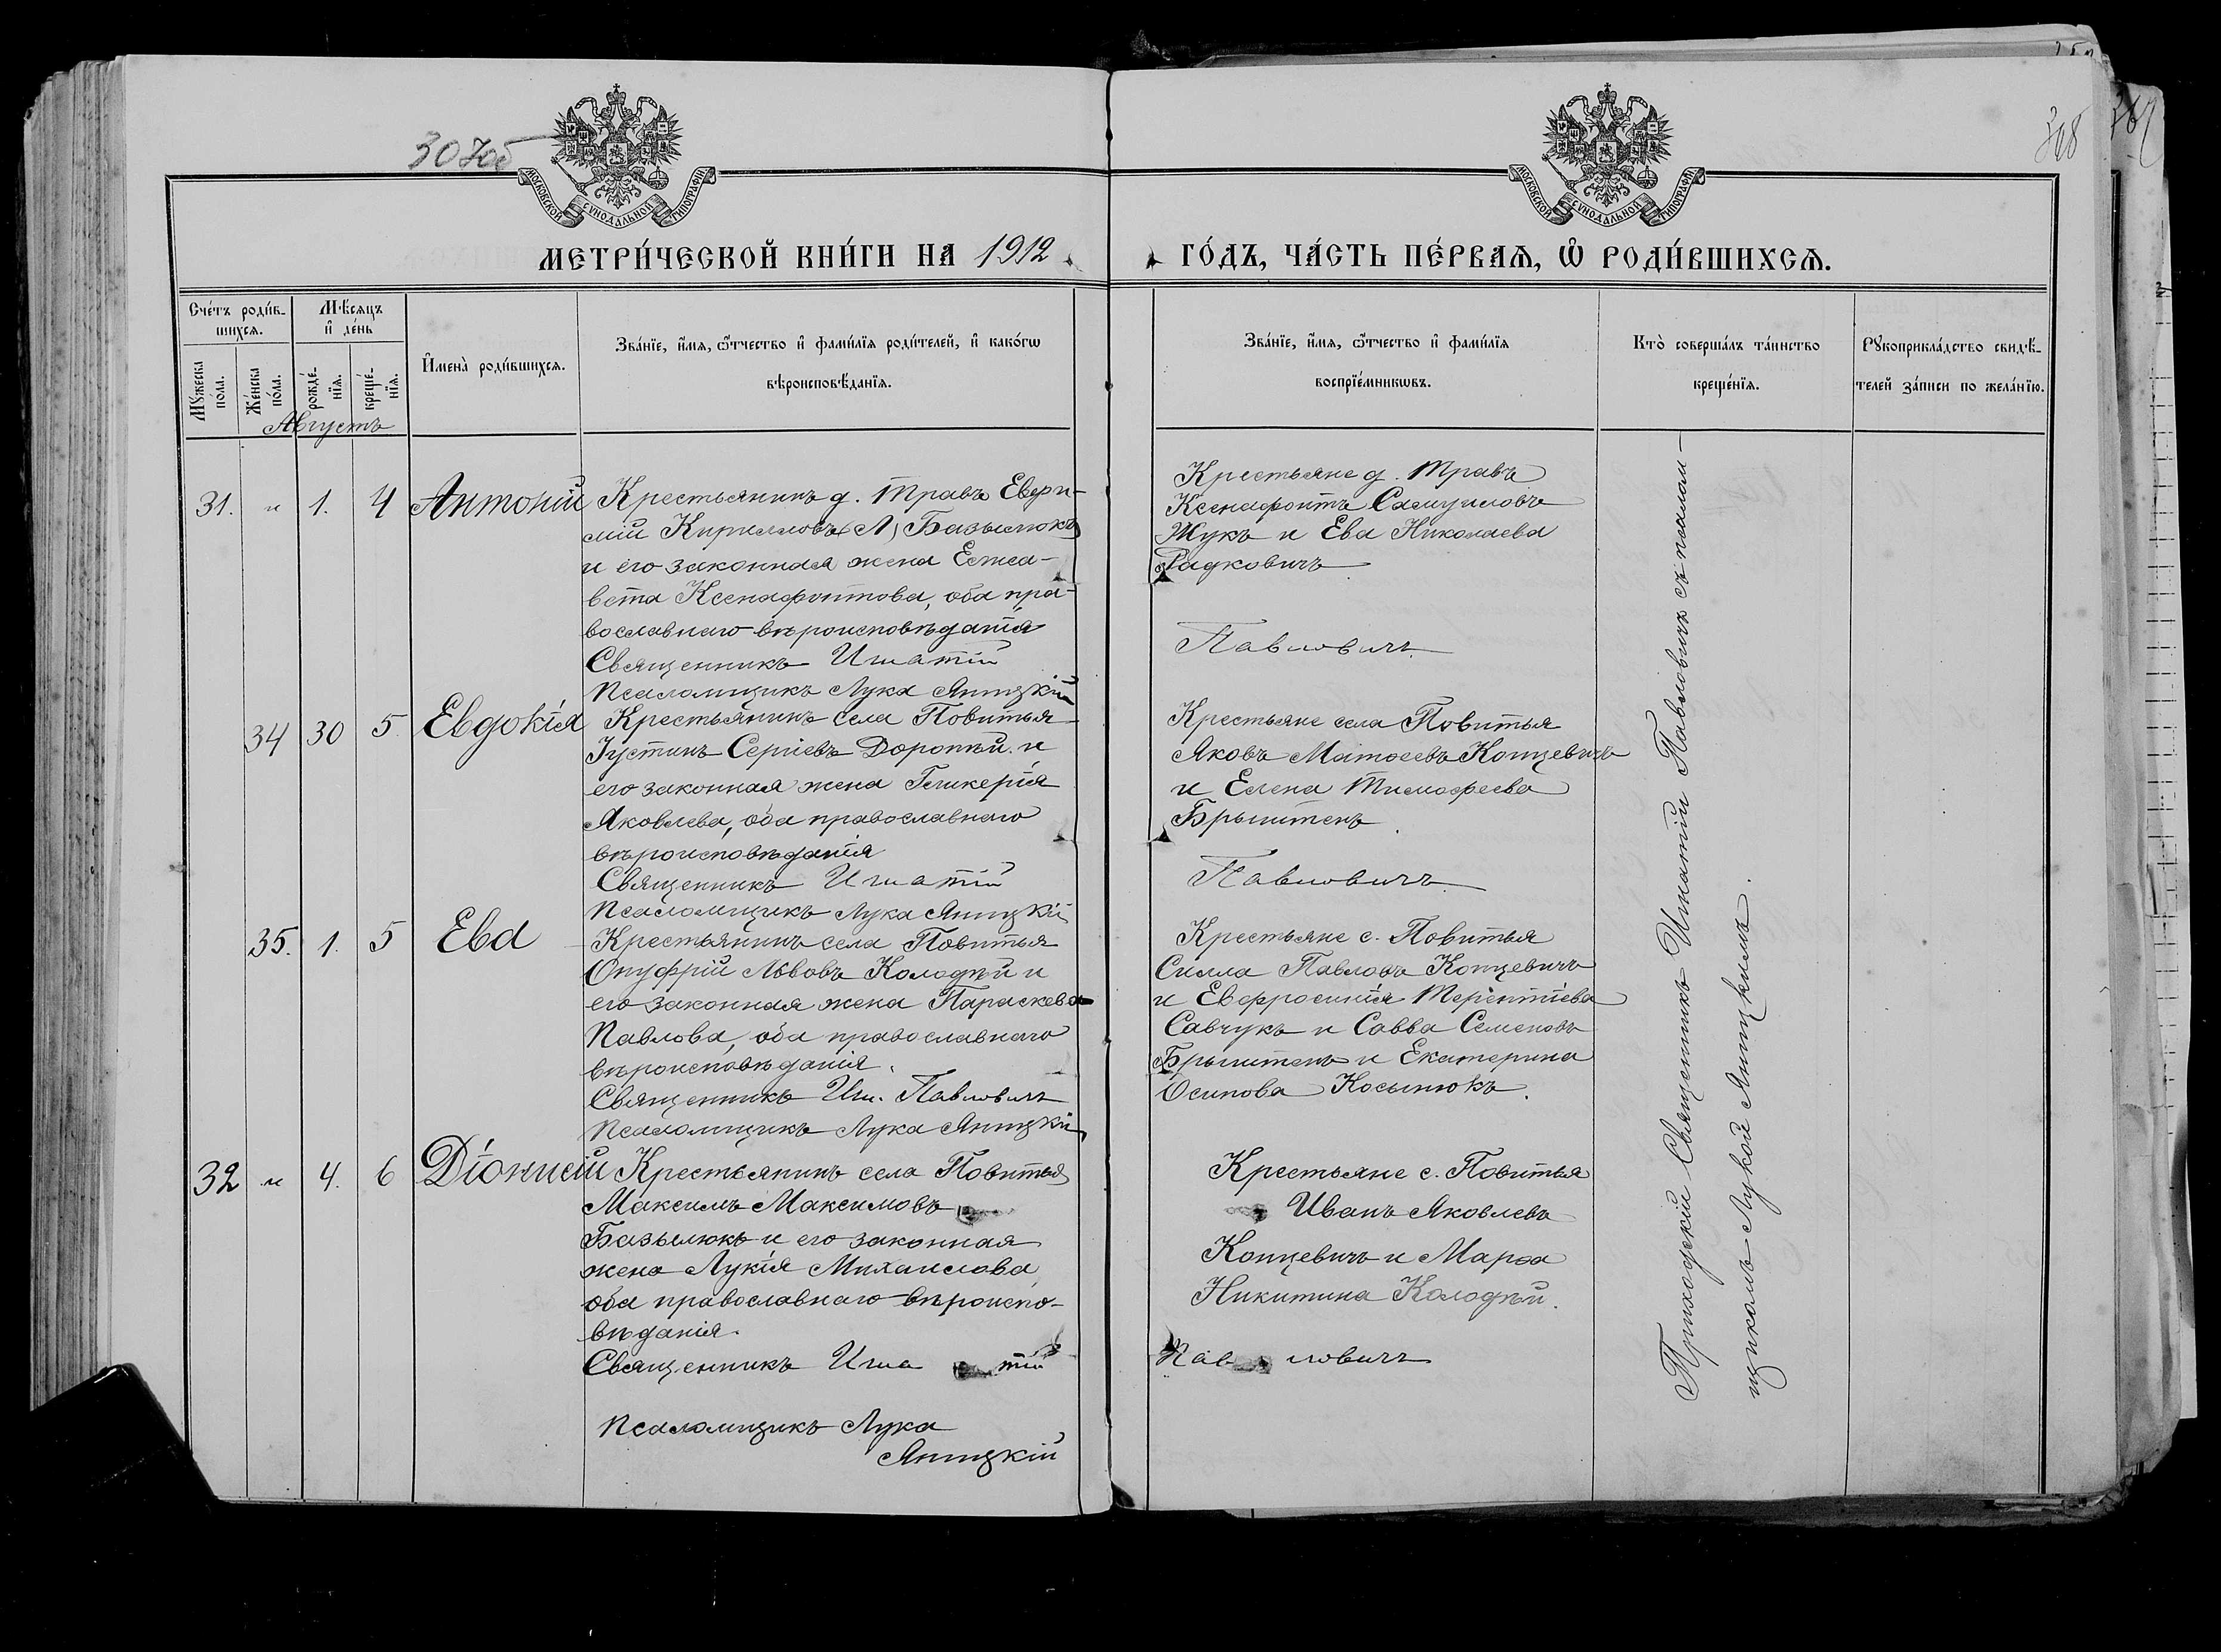 307об
308
МОСКОВСКОЙ СѴНОДАЛЬНОЙ ТИПОГРАФІИ
МОСКОВСКОЙ СѴНОДАЛЬНОЙ ТИПОГРАФІИ
МЕТРИ́ЧЕСКОЙ КНИ́ГИ НА 1912
ГО́ДЪ, ЧА́СТЬ ПЕ́РВАѦ, Ѡ҆ РОДИ́ВШИХСѦ.
Сче́тъ роди́в-
шихсѧ.
Мꙋ́жеска по́ла.
Же́нска по́ла.
Мѣ́сѧцъ
и҆ де́нь
рожде́-нїѧ.
креще́-нїѧ.
И҆мена̀ роди́вшихсѧ.
Зва́нїе, и҆́мѧ, ѻ҆́тчество и҆ фами́лїѧ роди́телей, и҆ како́гѡ
вѣроисповѣ́данїѧ.
Зва́нїе, и҆́мѧ, ѻ҆́тчество и҆ фами́лїѧ
воспрїе́мникѡвъ.
Кто̀ соверша́лъ та́инство
креще́нїѧ.
Рꙋкоприкла́дство свидѣ́-
телей за́писи по жела́нїю.
Августъ
31. " 1. 4 Антоній
Крестьянинъ д. Травъ Евфи-
мій Кирилловъ (Л) Базылюкъ
и его законная жена Елиса-
вета Ксенофонтова, оба пра-
вославнаго вѣроисповѣданія
Священникъ Игнатій
Псаломщикъ Лука Яницкій
Крестьяне д. Травъ
Ксенофонтъ Самуиловъ
Жукъ и Ева Николаева
Радковичъ
Павловичъ
34 30 5 Евдокія
Крестьянинъ села Повитья
Іустинъ Сергіевъ Доропѣй и
его законная жена Гликерія
Яковлева, оба православнаго
вѣроисповѣданія
Священникъ Игнатій
Псаломщикъ Лука Яницкій
Крестьяне села Повитья
Яковъ Матѳеевъ Концевичъ
и Елена Тимофеева
Брыштенъ
Павловичъ
35. 1. 5 Ева
Крестьянинъ села Повитья
Онуфрій Львовъ Колодѣй и
его законная жена Параскева
Павлова, оба православнаго
вѣроисповѣданія.
Священникъ Игн. Павловичъ
Псаломщикъ Лука Яницкій
Крестьяне с. Повитья
Силла Павловъ Концевичъ
и Евфросинія Терентіева
Савчукъ и Савва Семеновъ
Брыштенъ и Екатерина
Осипова Косынюкъ.
32 " 4. 6 Діонисій
Крестьянинъ села Повитья
Максимъ Максимовъ
Базылюкъ и его законная
жена Лукія Михаилова
оба православнаго вѣроиспо-
вѣданія.
Священникъ Игна тій
Псаломщикъ Лука
Яницкій
Крестьяне с. Повитья
Иванъ Яковлевъ
Концевичъ и Марѳа
Никитина Колодѣй.
Пав ловичъ
Приходскій Священникъ Игнатій Павловичъ съ псалом-
щикомъ Лукой Яницкимъ.